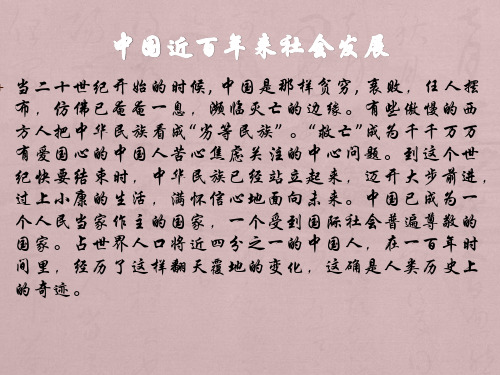 中国近百年来社会发展
当二十世纪开始的时候,中国是那样贫穷,衰败,任人摆
布,仿佛已奄奄一息,濒临灭亡的边缘。有些傲慢的西
方人把中华民族看成“劣等民族”。“救亡”成为千千万万
有爱国心的中国人苦心焦虑关注的中心问题。到这个世
纪快要结束时,中华民族已经站立起来,迈开大步前进,
过上小康的生活,满怀信心地面向未来。中国已成为一
个人民当家作主的国家,一个受到国际社会普遍尊敬的
国家。占世界人口将近四分之一的中国人,在一百年时
间里,经历了这样翻天覆地的变化,这确是人类历史上
的奇迹。